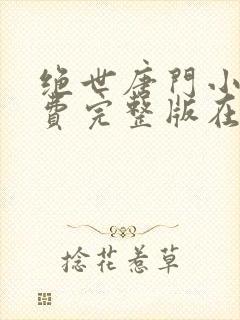 绝世唐門小
費完整版在
捻花惹草